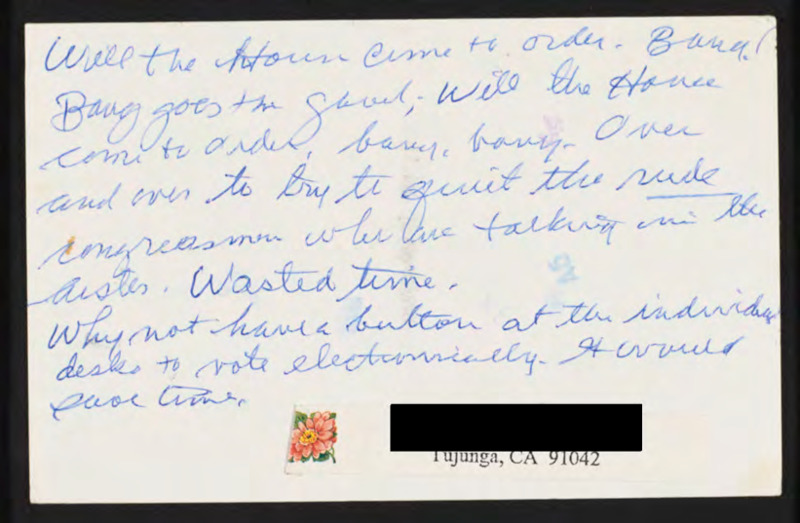 Will the House come to order. Bang!
Bang goes the gavel; Will the House
come to order, bang, bang. Over
and over to try to quiet the rude
congressmen who are talking in the
aisles. Wasted time.
Why not have a button at the individual
desks to vote electronically. It would
save time.
Tujunga, CA 91042